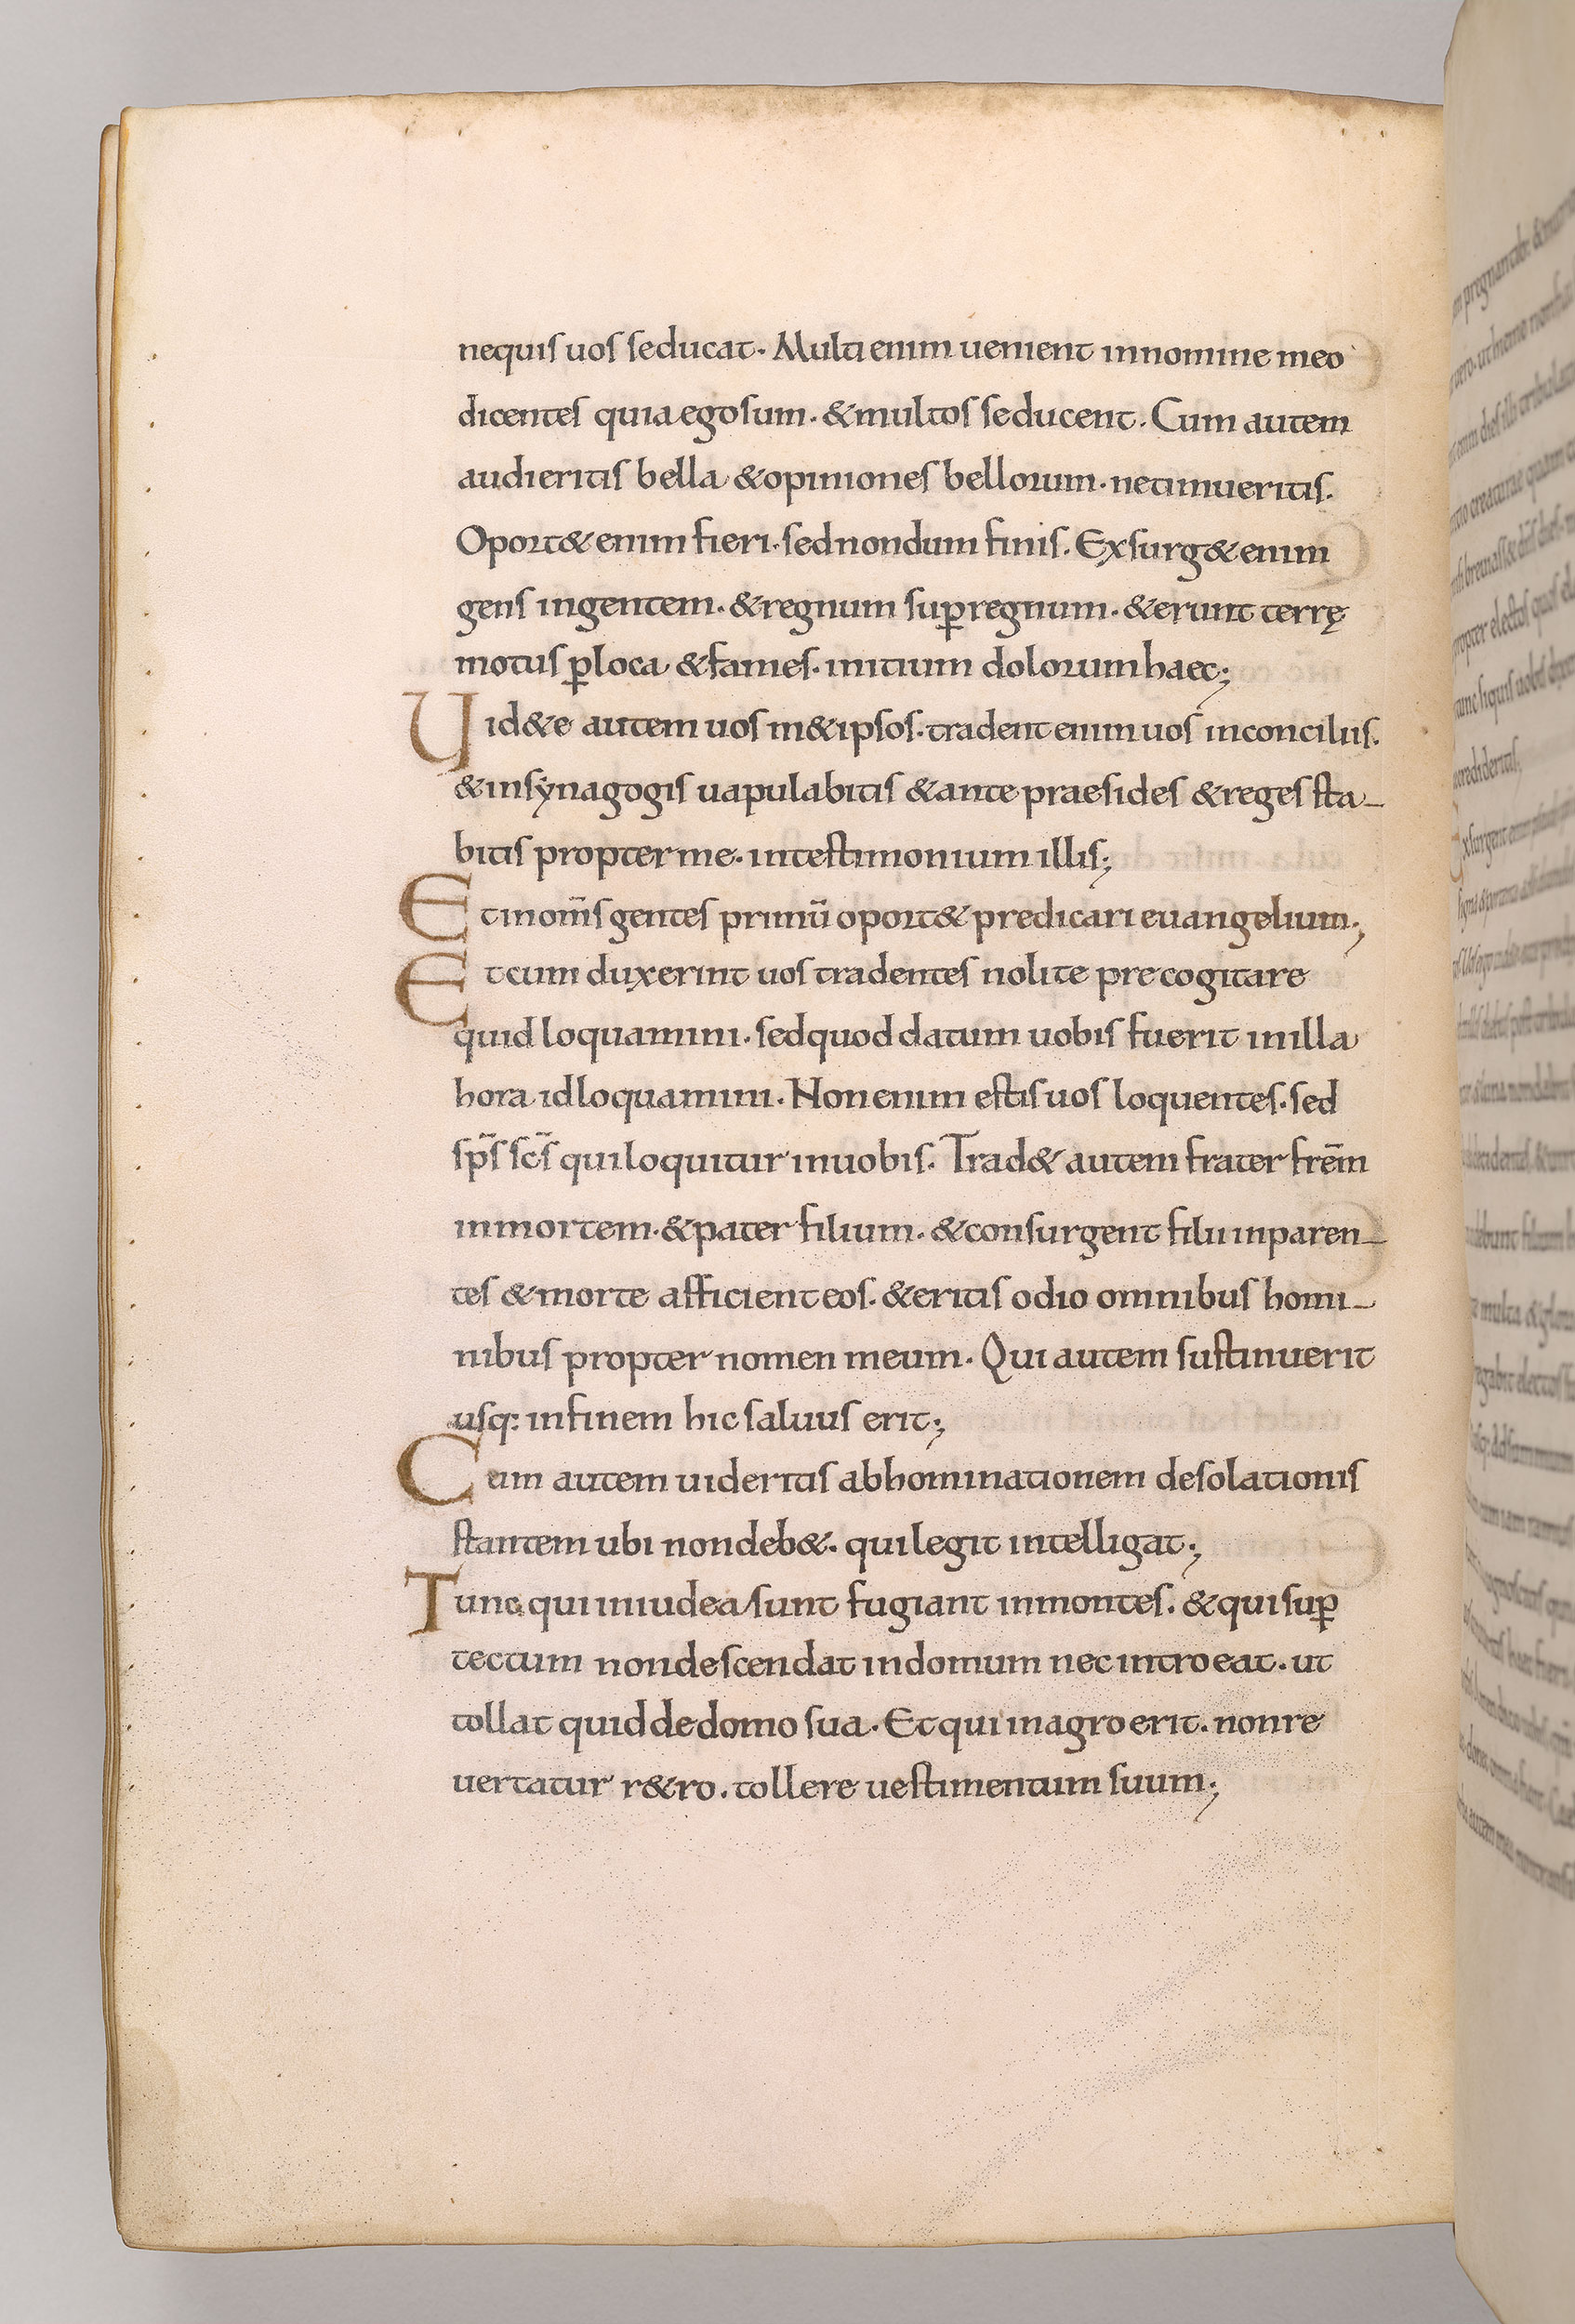 nequis uos seducat. Multi enim uenient innomine meo
dicentes quia egosum. &multos seducent. Cum autem
audieritis bella &opiniones bellorum. netimueritis.
Oport& enim fieri. sednondum finis. Exsurg& enim
gens ingentem. &regnum sup̄regnum. &erunt terrę
motus p̄loca &fames. initium dolorum haec;
Uid&e autem uos m&ipsos. tradent enim uos inconciliis.
&insynagogis uapulabitis &ante praesides &reges sta-
bitis propter me. intestimonium illis;
Et inom̄s gentes primū oport& predicari euangelium;
Et cum duxerint uos tradentes nolite precogitare
quid loquamini. sedquod datum uobis fuerit inilla
hora idloquamini. Non enim estis uos loquentes. sed
sp̄s sc̄s quiloquitur inuobis. Trad& autem frater frēm
inmortem. &pater filium. &consurgent filii inparen-
tes &morte afficient eos. &eritis odio omnibus homi-
nibus propter nomen meum. Qui autem sustinuerit
usq: infinem hic saluus erit;
Cum autem uideritis abhominationem desolationis
stantem ubi nondeb&. quilegit intelligat;
Tunc qui iniudea sunt fugiant inmontes. &quisup̄
tectum nondescendat indomum nec introeat. ut
tollat quid dedomo sua. Et qui inagro erit. nonre
uertatur r&ro. tollere uestimentum suum;